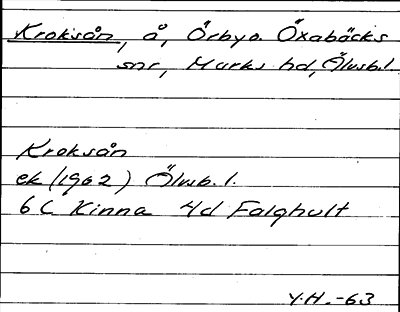 Kroksån, å, Örbyo. Öxabäcks
snr, Marks hd, Älvsb.l.
Kroksån
ek (1962) Älvsb. l.
6 C Kinna 4d Falghult
Y.H. -63